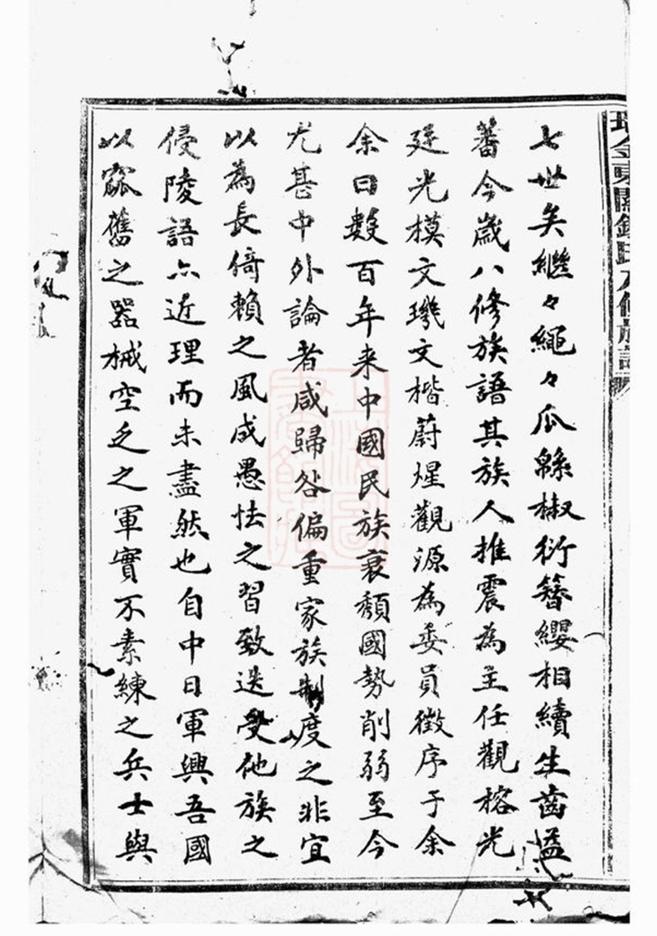 七世矣繼々繩々瓜緜椒衍簪纓相續生齒益
蕃今歲八修族語其族人推震為主任觀榕光
廷光模文璣文楷蔚煋觀源為委員徵序于余
余曰數百年来中國民族衰頹國勢削弱至今
尤甚中外論者咸歸咎偏重家族制度之非宜
以為長倚賴之風成愚怯之習致迭受他族之
侵陵語亦近理而未盡然也自中日軍興吾國
以窳舊之器械空乏之軍實不素練之兵士與